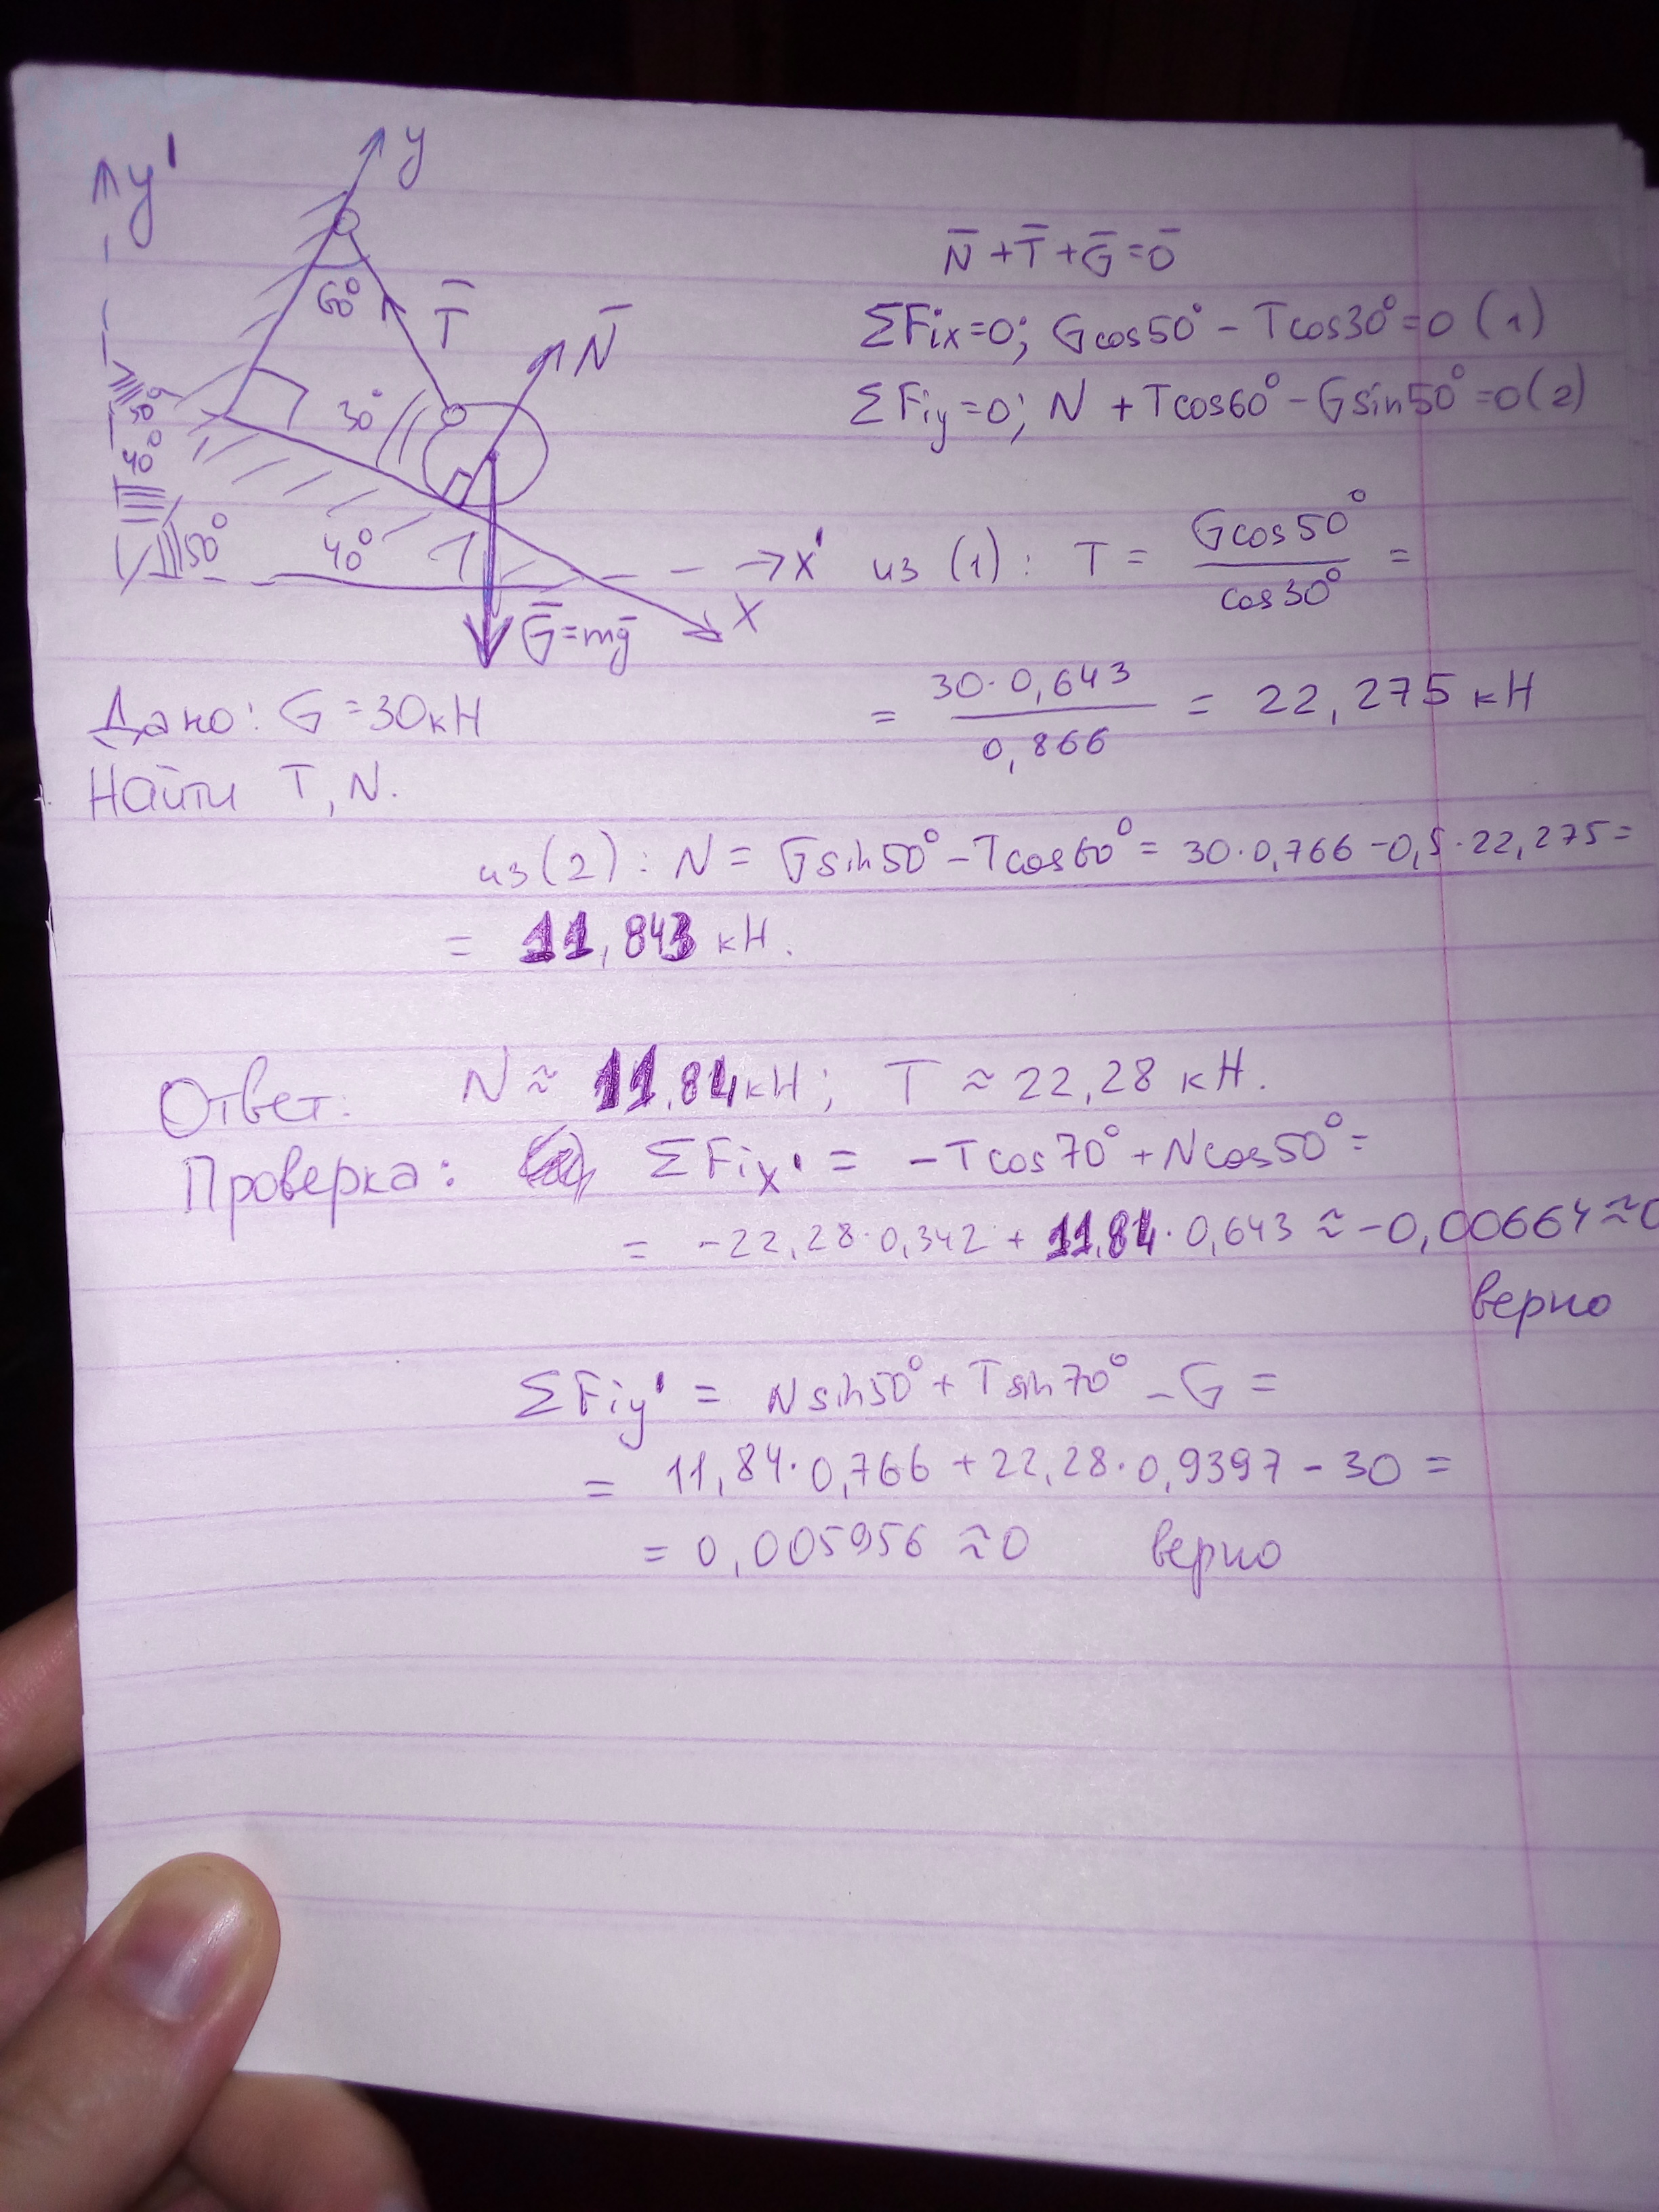 y'
y
60°
T̅
N̅
30°
50°
40°
50°
40°
x'
x
G̅=mg̅
N̅+T̅+G̅=0̅
ΣFix=0; Gcos50°-Tcos30°=0 (1)
ΣFiy=0; N+Tcos60°-Gsin50°=0 (2)
из (1): T = Gcos50°/cos30° =
= 30·0,643/0,866 = 22,275 кН
Дано: G=30кН
Найти T, N.
из (2): N = Gsin50°-Tcos60° = 30·0,766-0,5·22,275=
= 11,843 кН.
Ответ: N ≈ 11,84кН; T ≈ 22,28 кН.
Проверка: ΣFix' = -Tcos70°+Ncos50°=
= -22,28·0,342 + 11,84·0,643 ≈ -0,00664≈0
верно
ΣFiy' = Nsin50°+Tsin70°-G =
= 11,84·0,766+22,28·0,9397-30 =
= 0,005956 ≈0 верно